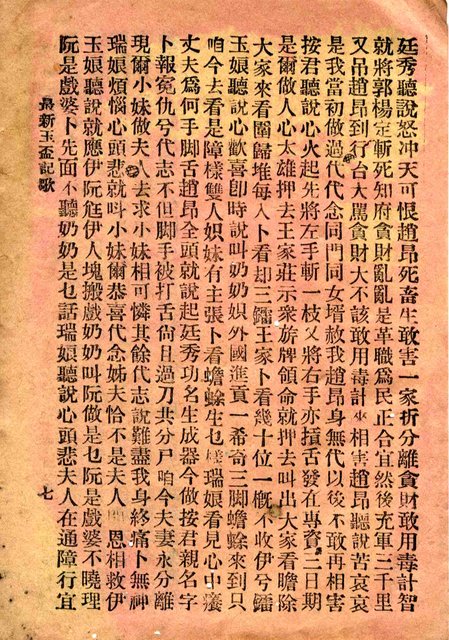 廷秀聽說怒冲天可恨趙昂死畜生敢害一家折分離貪財敢用毒計智
就將郭楊定斬死知府貪財亂亂是革職爲民正合宜然後充軍三千里
又吊趙昂到行台大罵貪財大不該敢用毒計坐相害趙昂聽說苦哀哀
是我當初做過代代念同門同女壻赦我趙昂身無代以後不敢再相害
按君聽說心火起先將左手斬一枝又將右手亦損舌發在專資三日期
是爾做人心太雄押去王家莊示衆旂牌領命就押去叫出大家看瞻除
大家來看圍歸堆每入卜看却三鐳王家卜看幾十位一慨不收伊兮鐳
玉娘聽說心歡喜卽時說叫奶奶娯外國進貢一希奇三脚蟾蜍來到只
咱今去看是障樣雙人娯妹有主張卜看蟾蜍生乜樣瑞娘看見心中癢
丈夫爲何手脚舌趙昂全頭就說起廷秀功名生成器今做按君親名字
卜報冤仇兮代志不但脚手被打舌尙且過刀共分尸咱今夫妻永分離
現爾小妹做夫人去求小妹相可憐其餘代志說難盡我身終痛卜無神
瑞娘煩惱心頭悲就叫小妹爾恭喜代念姊夫恰不是夫人恩相救伊
玉娘聽說就應伊阮尪伊人塊搬戲奶奶叫阮做是乜阮是戲婆不曉理
阮是戲婆卜先面不聽奶奶是乜話瑞娘聽說心頭悲夫人在通障行宜
最新玉盃記歌
七